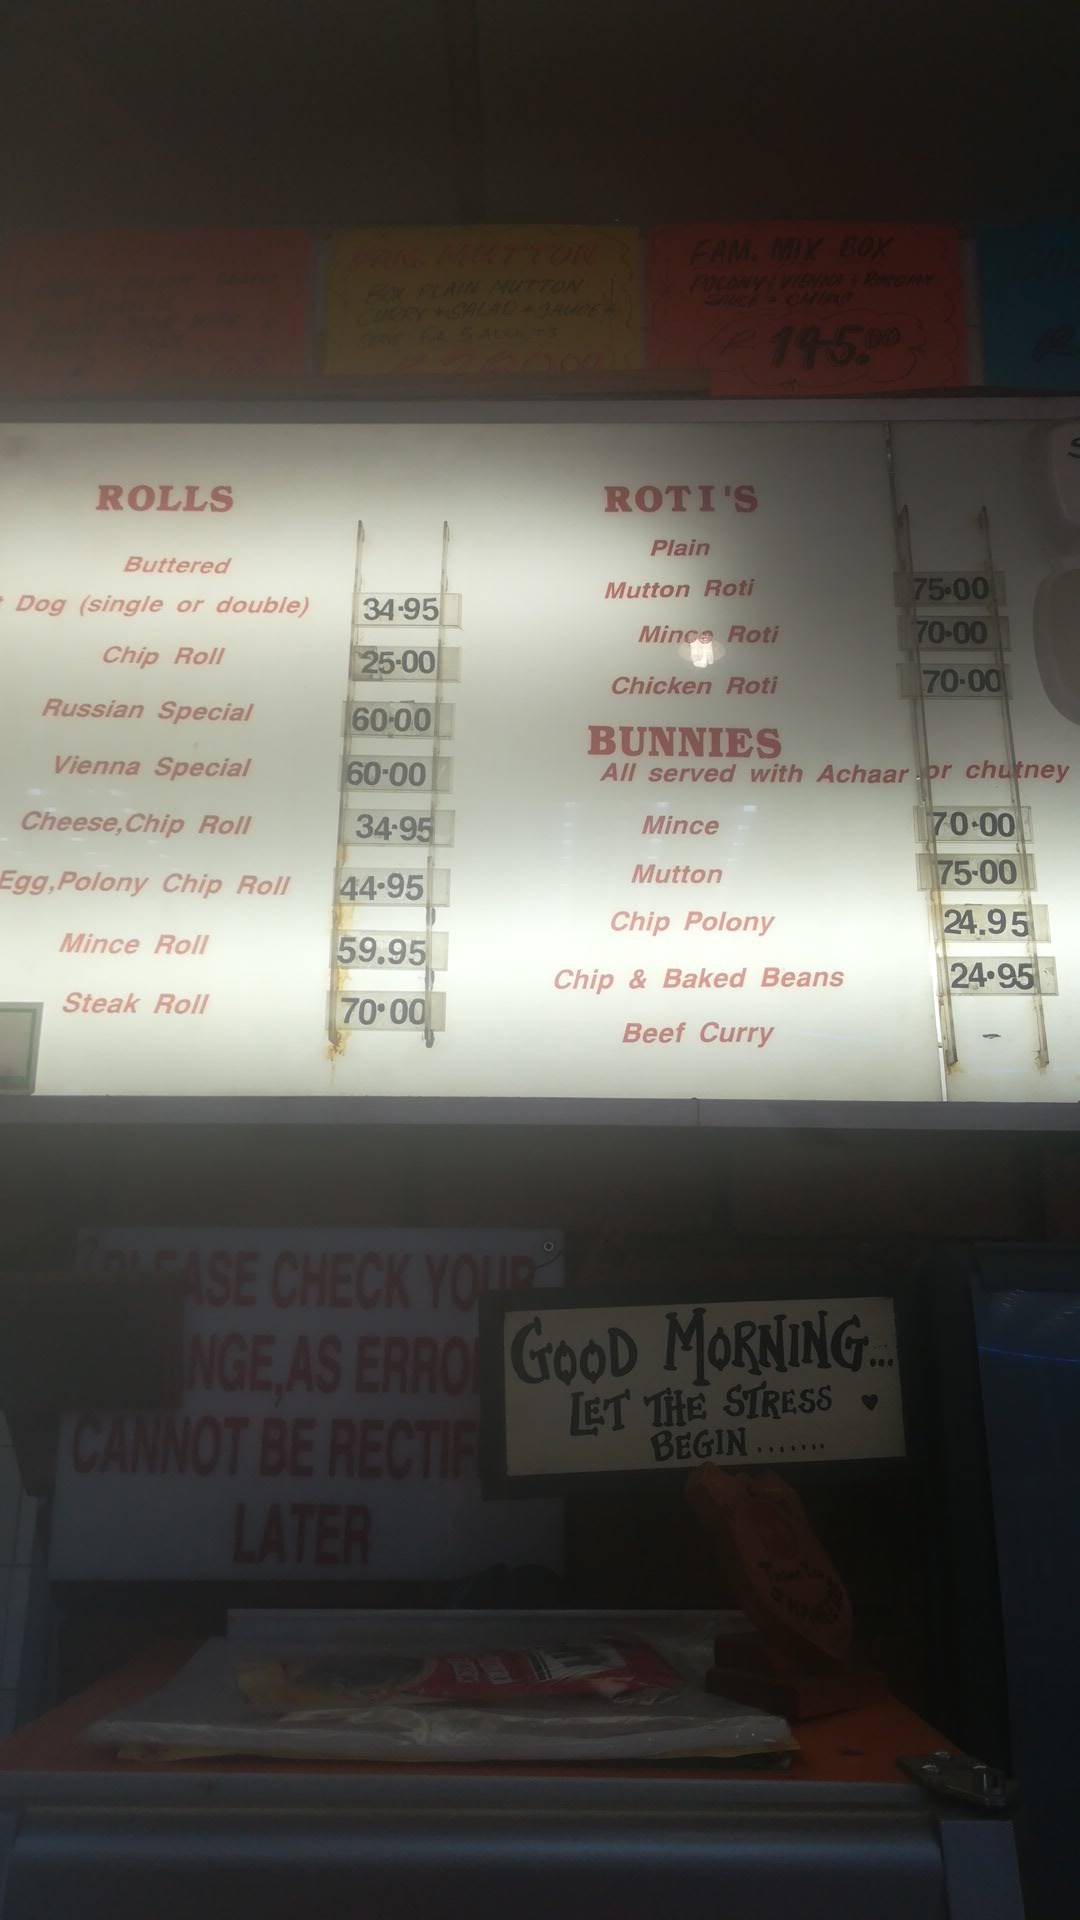 FAM. MUTTON
BOX PLAIN MUTTON
CURRY + SALAD + SAUCES
5 ADULTS
FAM. MIX BOX
POLONY, VIENNA + RUSSIAN
SAUCE + CHIPS
R 195.00
ROLLS
Buttered
Dog (single or double) 34.95
Chip Roll 25.00
Russian Special 60.00
Vienna Special 60.00
Cheese,Chip Roll 34.95
Egg,Polony Chip Roll 44.95
Mince Roll 59.95
Steak Roll 70.00
ROTI'S
Plain
Mutton Roti 75.00
Mince Roti 70.00
Chicken Roti 70.00
BUNNIES
All served with Achaar or chutney
Mince 70.00
Mutton 75.00
Chip Polony 24.95
Chip & Baked Beans 24.95
Beef Curry -
PLEASE CHECK YOUR
NGE,AS ERRO
CANNOT BE RECTIF
LATER
GOOD MORNING...
LET THE STRESS ♥
BEGIN.......